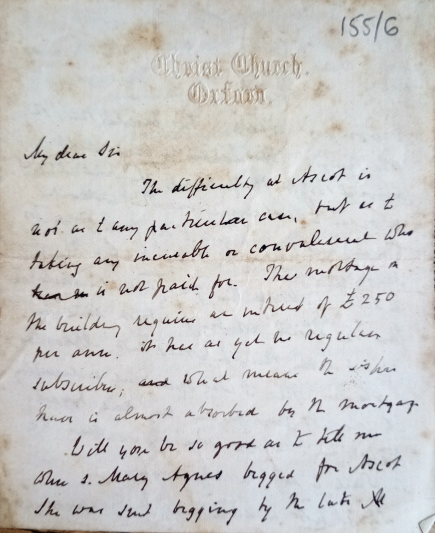 155/6
Christ Church.
Oxford.
My dear Sir
The difficulty at Ascot is
not as to any particular case, but as to
taking any incurable or convalescent who
is not paid for. The mortgage on
the building requires an interest of £250
per ann. it has as yet no regular
subscribers; and what means the sisters
have is almost absorbed by the mortgage
Will you be so good as to tell me
when S. Mary Agnes begged for Ascot
She was sent begging by the late